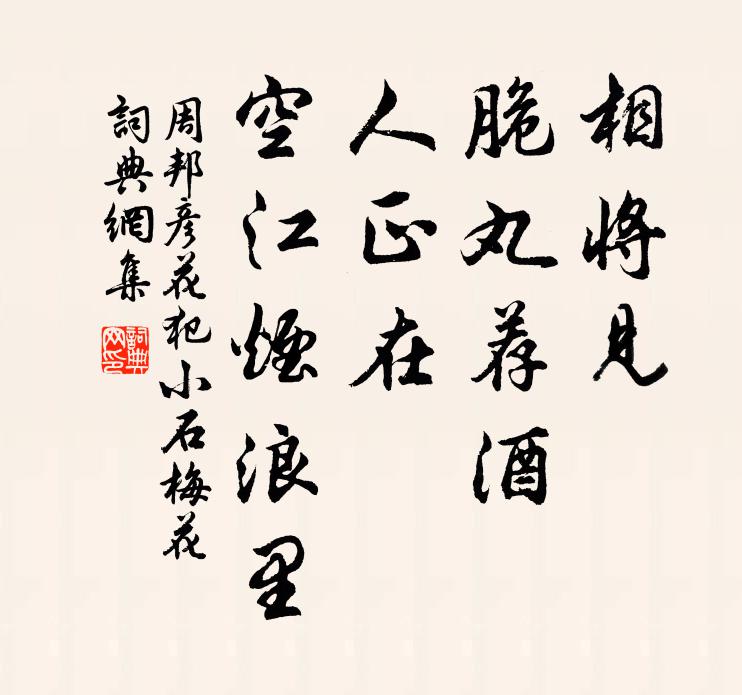 相将见
脆丸荐酒
人正在
空江烟浪里
周邦彦花犯小石梅花
詞典網集
詞典網印